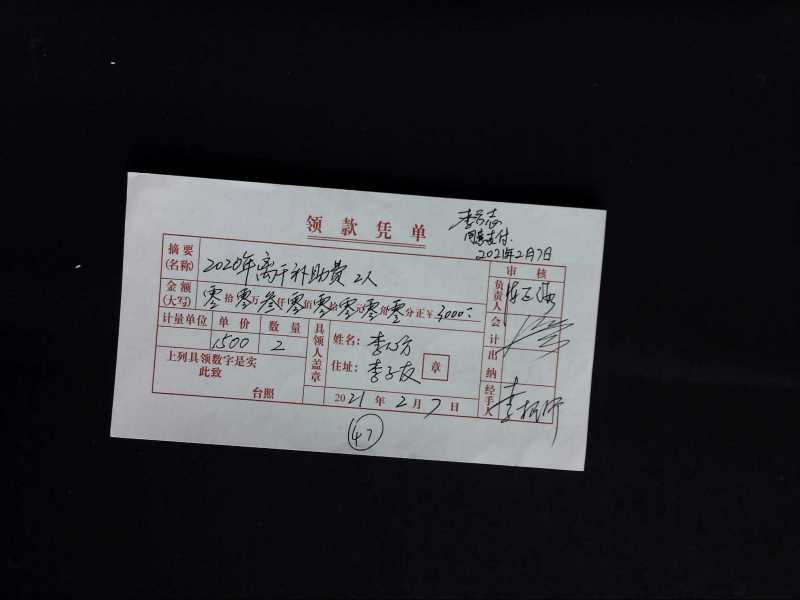 领款凭单
同意支付.
2021年2月7日
摘要(名称) 2020年离干补助费 2人
审核
金额(大写) 零拾零万叁仟零佰零拾零元零角零分正¥3000:
负责人
计量单位 单价 数量
1500 2
具领人盖章
姓名:
住址: 李子友
章
会计
出纳
经手人
上列具领数字是实
此致
台照
2021年2月7日
47